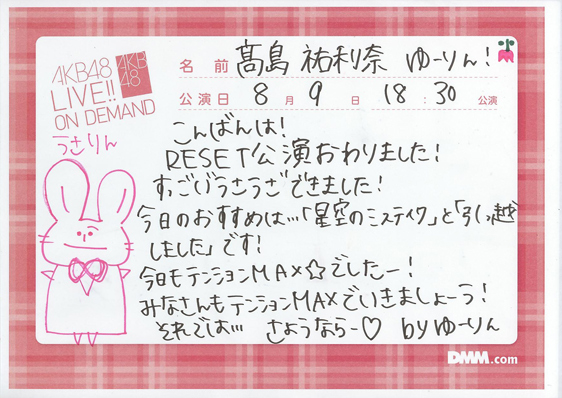 AKB48
LIVE!!
ON DEMAND
AKB
48
名前 髙島 祐利奈 ゆーりん!
公演日 8月9日 18:30 公演
うさりん
こんばんは!
RESET公演おわりました!
すごいうさうさできました!
今日のおすすめは…「星空のミステイク」と「引っ越
しました」です!
今日もテンションMAX☆でしたー!
みなさんもテンションMAXでいきましょーう!
それでは… さようならー♡ byゆーりん
DMM.com